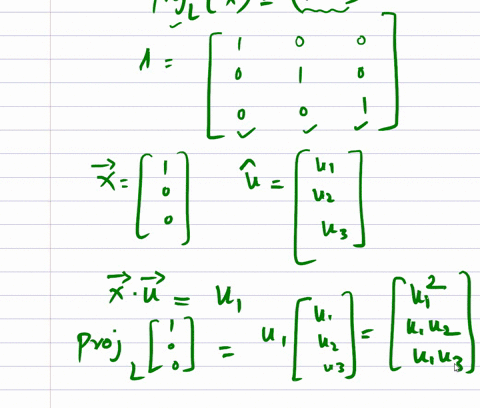 Proj_L (x) =
A = [1 0 0; 0 1 0; 0 0 1]
x⃗ = [1; 0; 0] û = [u1; u2; u3]
x⃗ · u⃗ = u1
Proj_L [1; 0; 0] = u1 [u1; u2; u3] = [u1²; u1u2; u1u3]